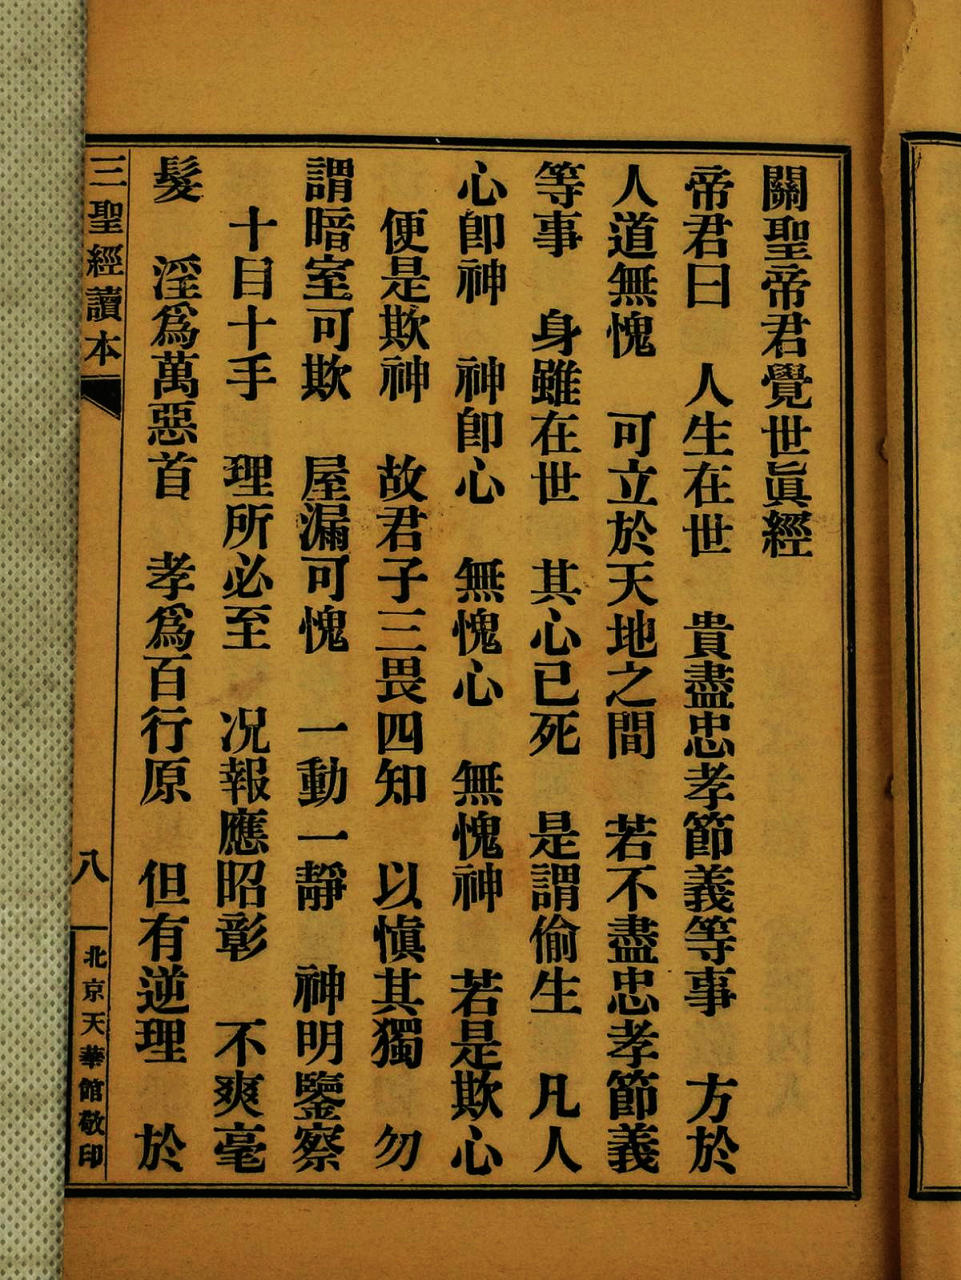 關聖帝君覺世眞經
帝君曰 人生在世 貴盡忠孝節義等事 方於
人道無愧 可立於天地之間 若不盡忠孝節義
等事 身雖在世 其心已死 是謂偷生 凡人
心卽神 神卽心 無愧心 無愧神 若是欺心
便是欺神 故君子三畏四知 以愼其獨 勿
謂暗室可欺 屋漏可愧 一動一靜 神明鑒察
十目十手 理所必至 况報應昭彰 不爽毫
髮 淫爲萬惡首 孝爲百行原 但有逆理 於
三聖經讀本
八
北京天華館敬印